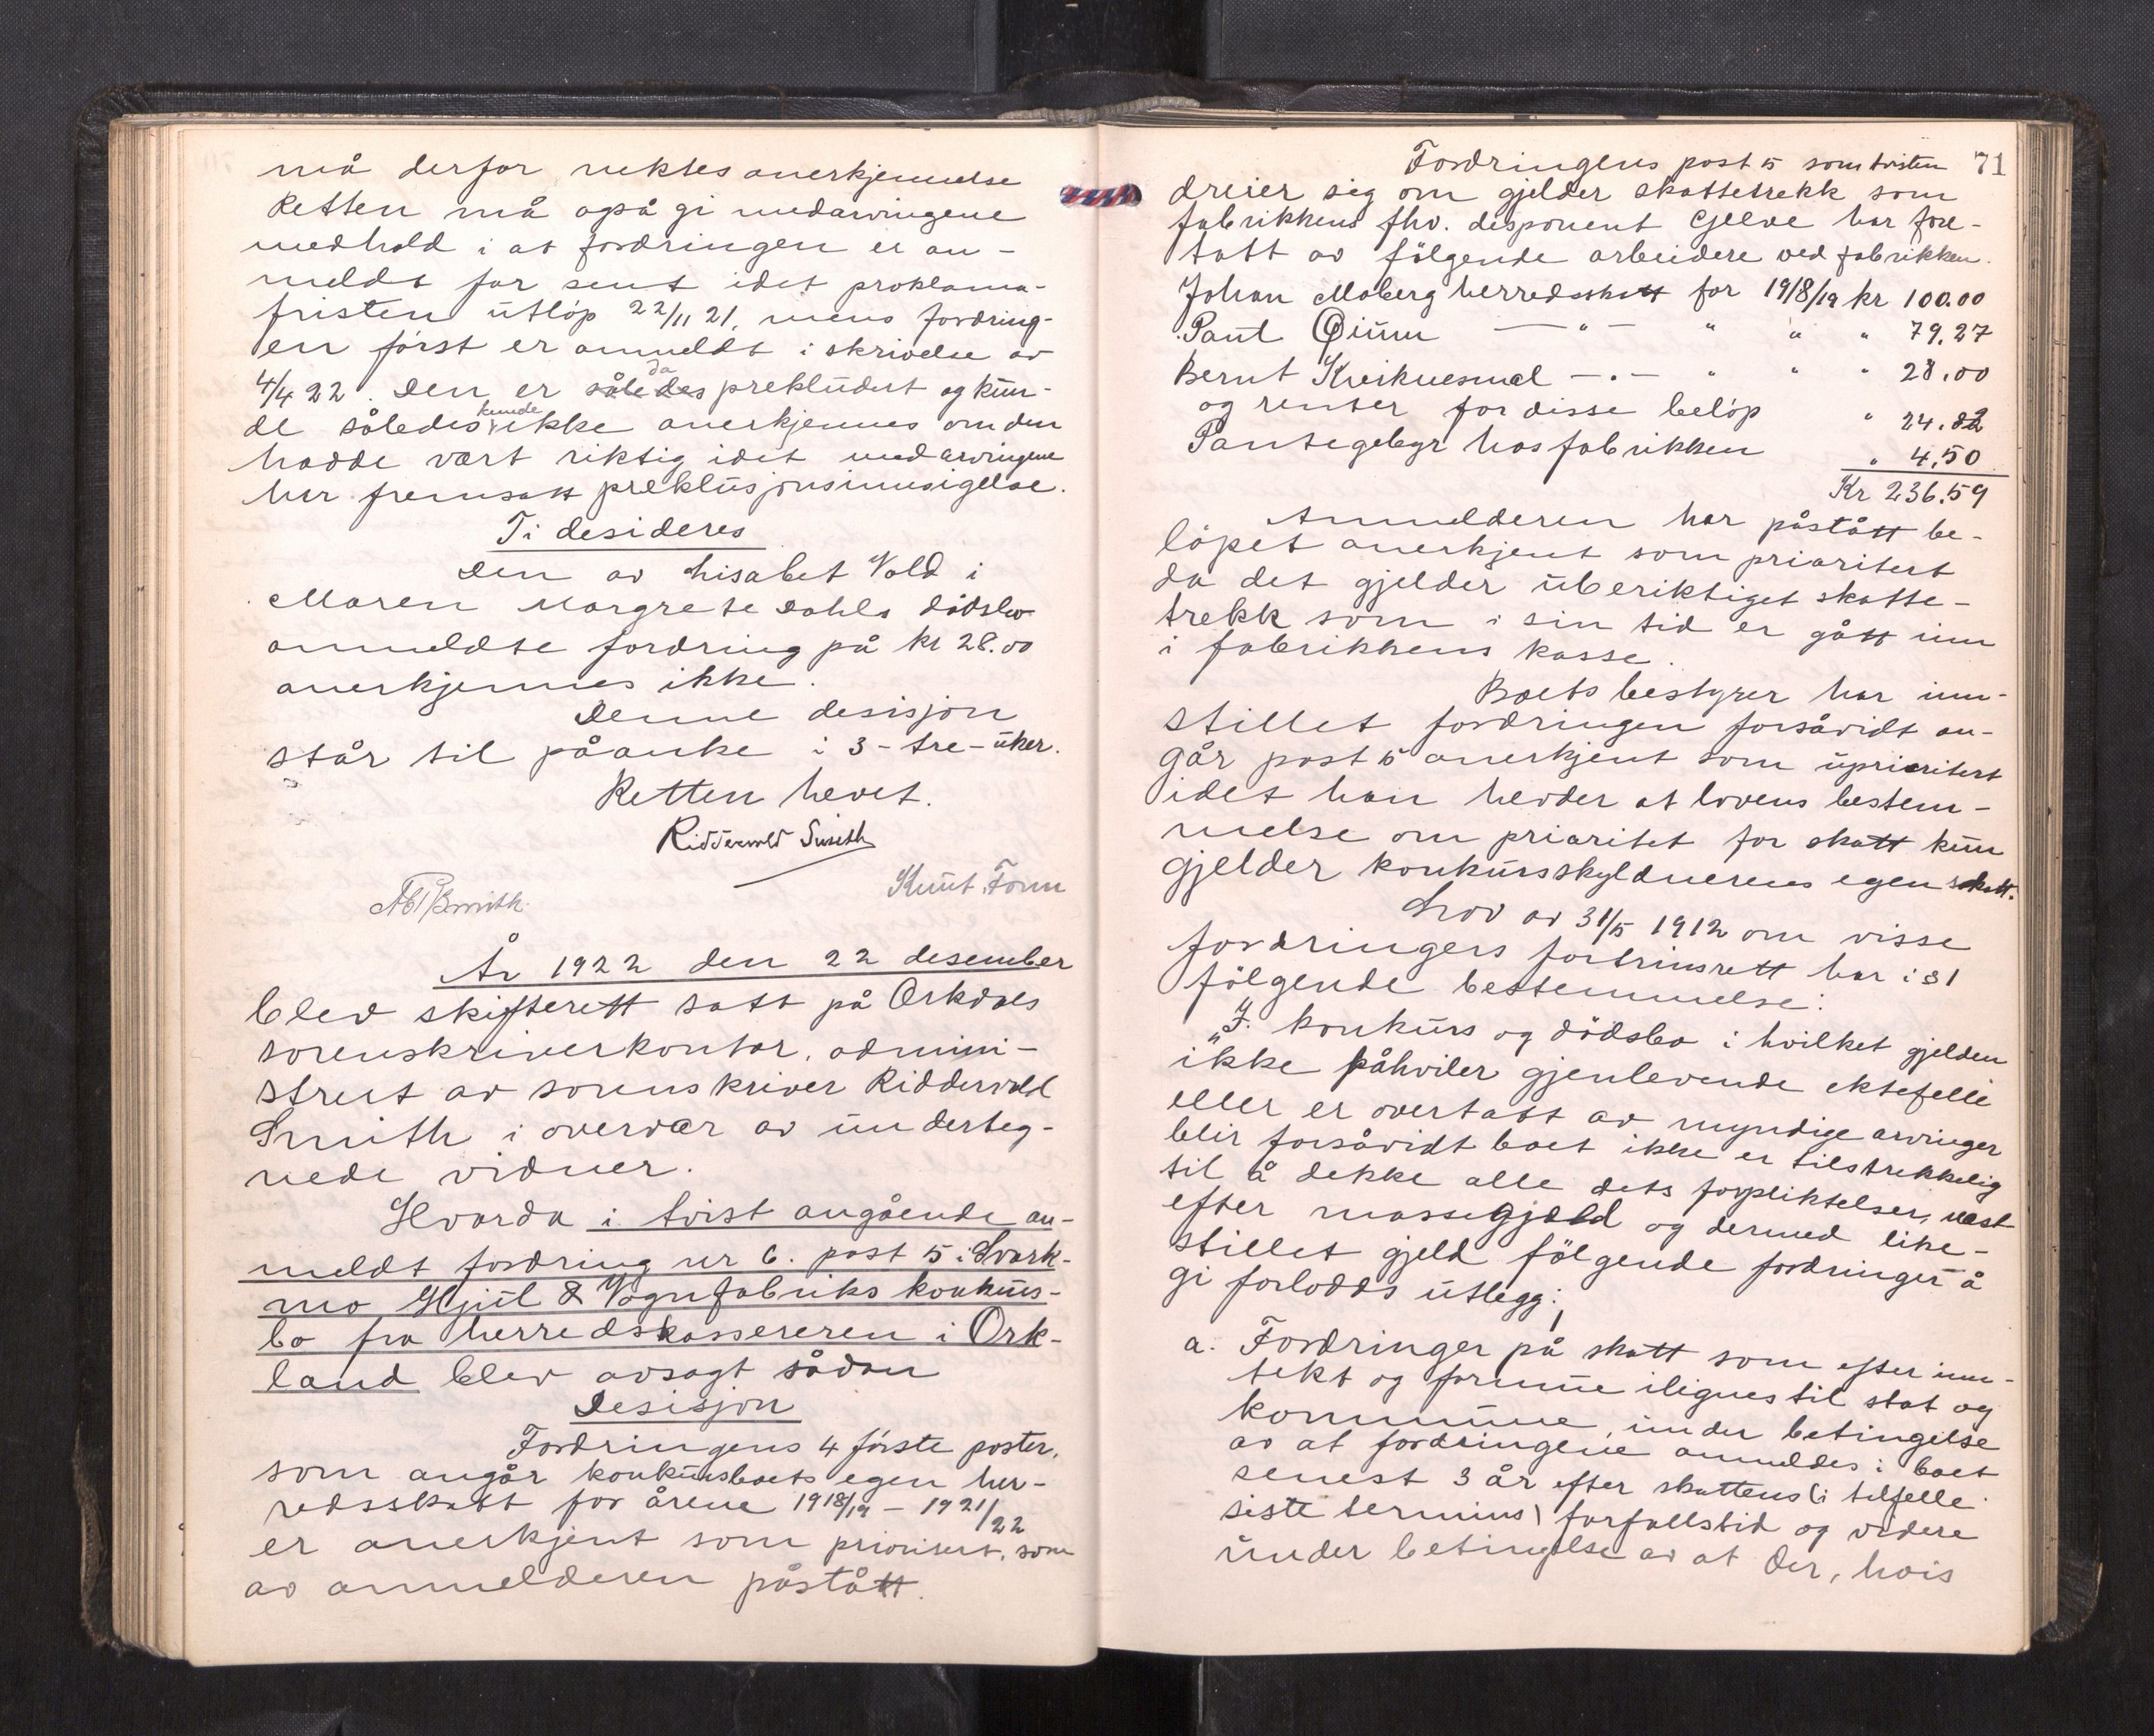 må derfor nektes anerkjennelse
Retten må også gi medarvingene
medhold i at fordringen er an-
meldt for sent idet proklama-
fristen utløp 22/11 21, mens fordring-
en först er anmeldt i skrivelse av
4/4 22. Den er således da prekludert og kun-
de således kunde ikke anerkjennes om den
hadde vært riktig idet medarvingene
har fremsatt preklusjonsinnsigelse.
Ti desideres
Den av Lisabet Vold i
Maren Margrete Dahls dödsbo
anmeldte fordring på kr 28.00
anerkjennes ikke.
Denne desisjon
står til påanke i 3 - tre - uker.
Retten hevet.
Riddervold Smith
Knut Form
År 1922 den 22 desember
blev skifterett satt på Orkdals
sorenskriverkontor, admini-
strert av sorenskriver Riddervold
Smith i overvær av underteg-
nede vidner.
Hvorda i tvist angående an-
meldt fordring nr 6. post 5 i Svork-
mo Hjul & Vognfabriks konkurs-
bo fra herredskassereren i Ork-
land blev avsagt sådan
Desisjon
Fordringens 4 förste poster,
som angår konkursboets egen her-
redsskatt for årene 1918/19 - 1921/22
er anerkjent som prioritert, som
av anmelderen påstått.
71
Fordringens post 5 som tvisten
dreier sig om gjelder skattetrekk som
fabrikkens fhv. disponent Gjelve har fore-
tatt av fölgende arbeidere ved fabrikken.
Johan Moberg herredsskatt for 1918/19 kr 100.00
Paul Qiunn — " — " " " 79.27
Bernt Kreiknesmel — " — " " " 28.00
og renter for disse belöp " 24.82
Pantegebyr hos fabrikken " 4.50
Kr 236.59
Anmelderen har påstått be-
löpet anerkjent som prioritert
da det gjelder uberiktiget skatte-
trekk som i sin tid er gått inn
i fabrikkens kasse.
Boets bestyrer har inn-
stillet fordringen forsåvidt an-
går post 5 anerkjent som uprioritert
idet han hevder at lovens bestem-
melse om prioritet for skatt kun
gjelder konkursskyldnerens egen skatt.
Lov av 31/5 1912 om visse
fordringers fortrinsrett har i § 1
fölgende bestemmelse:
"I konkurs og dödsbo i hvilket gjelden
ikke påhviler gjenlevende ektefelle
eller er overtatt av myndige arvinger
blir forsåvidt boet ikke er tilstrekkelig
til å dekke alle dets forpliktelser, næst
efter massegjæld og dermed like-
stillet gjeld fölgende fordringer å
gi forlodds utlegg:
a. Fordringer på skatt som efter inn-
tekt og formue ilignes til stat og
kommune, under betingelse
av at fordringene anmeldes i boet
senest 3 år efter skattens (i tilfelle
siste termins) forfallstid og videre
under betingelse av at der, hvis